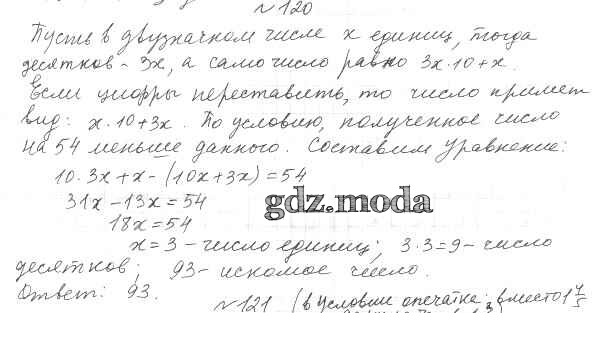 №120
Пусть в двузначном числе x единиц, тогда
десятков - 3x, а само число равно 3x·10+x.
Если цифры переставить, то число примет
вид: x·10+3x. По условию, полученное число
на 54 меньше данного. Составим уравнение:
10·3x+x-(10x+3x)=54
31x-13x=54
gdz.moda
18x=54
x=3 - число единиц; 3·3=9 - число
десятков; 93 - искомое число.
Ответ: 93.
№121 (в условии опечатка: вместо 1